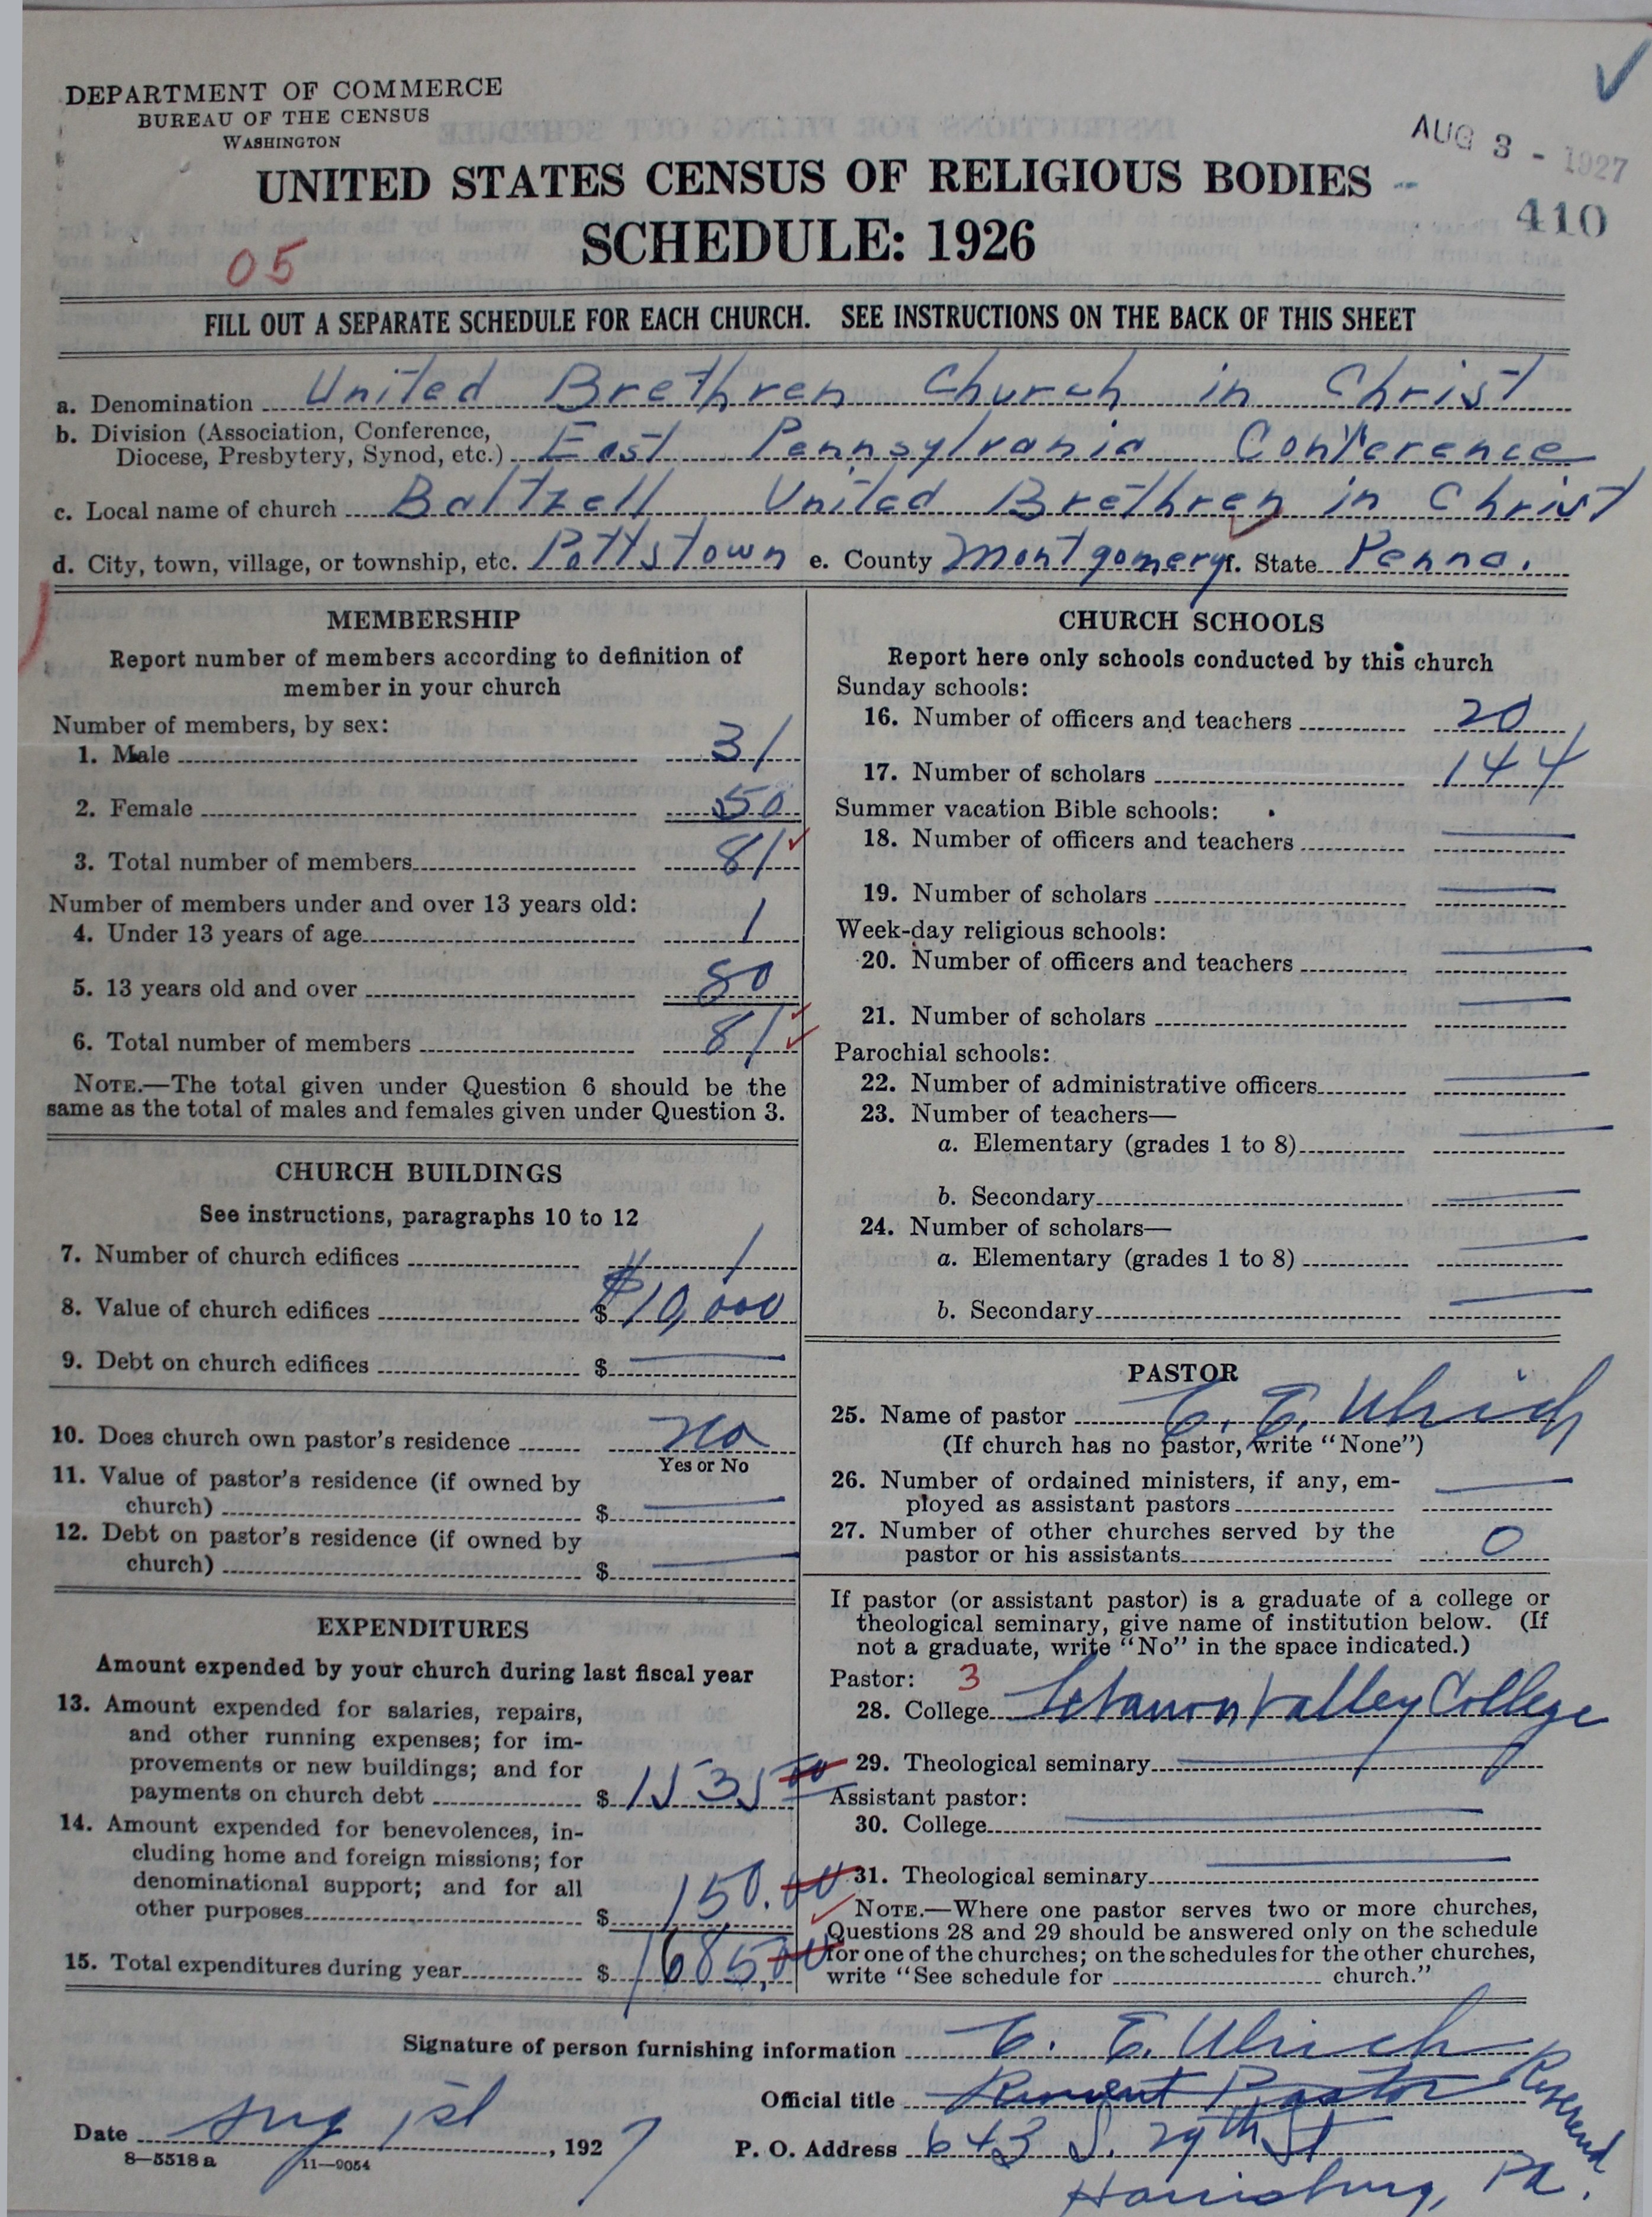 DEPARTMENT OF COMMERCE
BUREAU OF THE CENSUS
WASHINGTON
AUG 3 - 1927
410
UNITED STATES CENSUS OF RELIGIOUS BODIES
SCHEDULE: 1926
05
FILL OUT A SEPARATE SCHEDULE FOR EACH CHURCH. SEE INSTRUCTIONS ON THE BACK OF THIS SHEET
a. Denomination United Brethren Church in Christ
b. Division (Association, Conference,
Diocese, Presbytery, Synod, etc.) East Pennsylvania Conference
c. Local name of church Baltzell United Brethren in Christ
d. City, town, village, or township, etc. Pottstown e. County Montgomery f. State Penna.
MEMBERSHIP
Report number of members according to definition of
member in your church
Number of members, by sex:
1. Male 31
2. Female 50
3. Total number of members 81
Number of members under and over 13 years old:
4. Under 13 years of age 1
5. 13 years old and over 80
6. Total number of members 81
NOTE.—The total given under Question 6 should be the
same as the total of males and females given under Question 3.
CHURCH BUILDINGS
See instructions, paragraphs 10 to 12
7. Number of church edifices 1
8. Value of church edifices $ $10,000
9. Debt on church edifices $ —
10. Does church own pastor's residence No
Yes or No
11. Value of pastor's residence (if owned by
church) $ —
12. Debt on pastor's residence (if owned by
church) $ —
EXPENDITURES
Amount expended by your church during last fiscal year
13. Amount expended for salaries, repairs,
and other running expenses; for im-
provements or new buildings; and for
payments on church debt $ 1535 00
14. Amount expended for benevolences, in-
cluding home and foreign missions; for
denominational support; and for all
other purposes $ 150.00
15. Total expenditures during year $ 1685.00
CHURCH SCHOOLS
Report here only schools conducted by this church
Sunday schools:
16. Number of officers and teachers 20
17. Number of scholars 144
Summer vacation Bible schools:
18. Number of officers and teachers —
19. Number of scholars —
Week-day religious schools:
20. Number of officers and teachers —
21. Number of scholars —
Parochial schools:
22. Number of administrative officers —
23. Number of teachers—
a. Elementary (grades 1 to 8) —
b. Secondary —
24. Number of scholars—
a. Elementary (grades 1 to 8) —
b. Secondary —
PASTOR
25. Name of pastor C. E. Ulrich
(If church has no pastor, write "None")
26. Number of ordained ministers, if any, em-
ployed as assistant pastors —
27. Number of other churches served by the
pastor or his assistants 0
If pastor (or assistant pastor) is a graduate of a college or
theological seminary, give name of institution below. (If
not a graduate, write "No" in the space indicated.)
Pastor: 3
28. College Lebanon Valley College
29. Theological seminary —
Assistant pastor:
30. College —
31. Theological seminary —
NOTE.—Where one pastor serves two or more churches,
Questions 28 and 29 should be answered only on the schedule
for one of the churches; on the schedules for the other churches,
write "See schedule for church."
Signature of person furnishing information C. E. Ulrich
Official title Pastor Reverend
Date Aug 1st, 1927
P. O. Address 643 S. 29th St
Harrisburg, Pa.
8—5518 a 11—9054